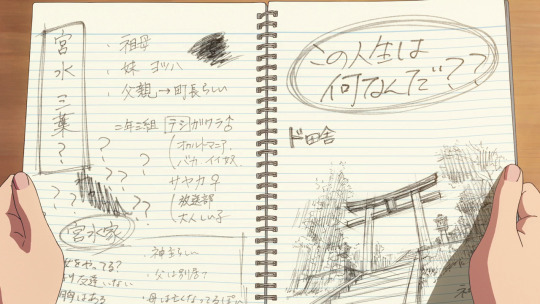 宮水三葉?
・祖母
・妹 ヨツハ
・父親→町長らしい
二年三組
テシガワラ♂
オカルトマニア、
バカ、イイ奴
サヤカ♀
放送部
大人しい子
? ? ? ? ? ? ?
宮水家
をやってる?
友達いない
胸はある
・神主らしい
・父は別居?
・母は亡くなってるっぽい
この人生は
何なんだ??
ド田舎